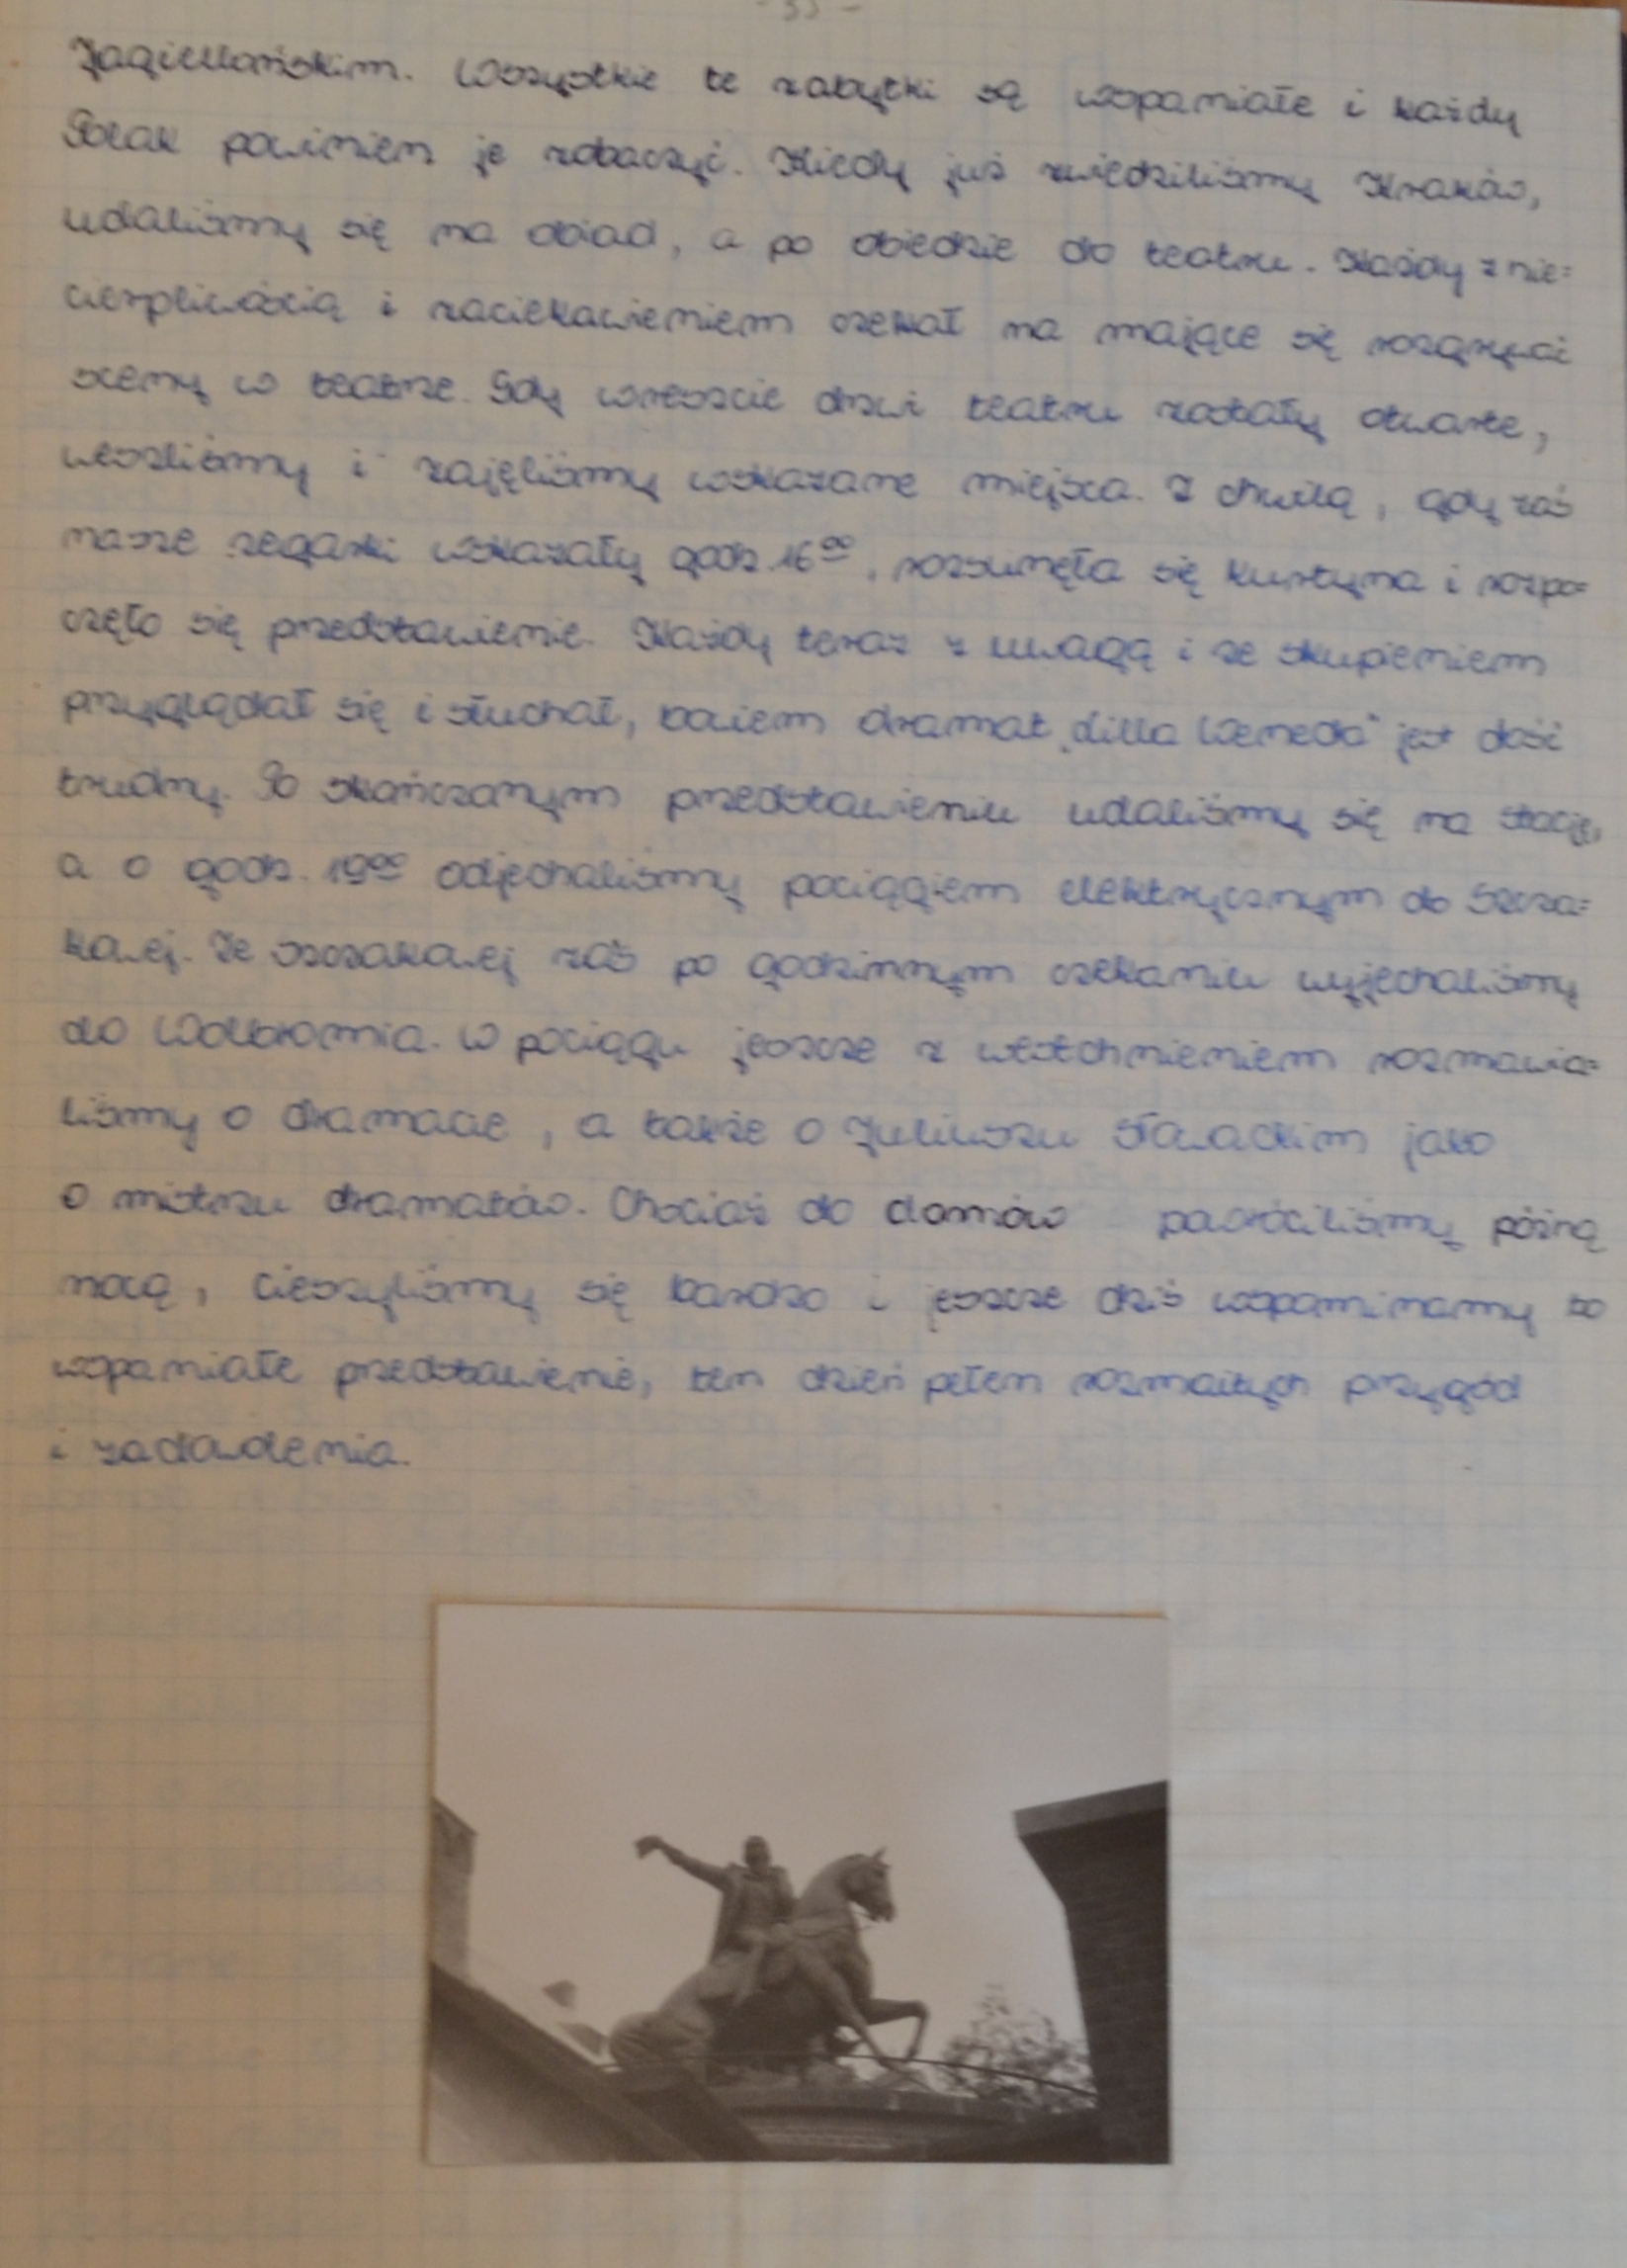 - 33 -
Jagiellońskim. Wszystkie te zabytki są wspaniałe i każdy
Polak powinien je zobaczyć. Kiedy już zwiedziliśmy Kraków,
udaliśmy się na obiad, a po obiedzie do teatru. Każdy z nie=
cierpliwością i zaciekawieniem czekał na mające się rozgrywać
sceny w teatrze. Gdy wreszcie drzwi teatru zostały otwarte,
weszliśmy i zajęliśmy wskazane miejsca. Z chwilą, gdy zaś
nasze zegarki wskazały godz. 16⁰⁰, rozsunęła się kurtyna i rozpo=
częło się przedstawienie. Każdy teraz z uwagą i ze skupieniem
przyglądał się i słuchał, bowiem dramat „Lilla Weneda" jest dość
trudny. Po skończonym przedstawieniu udaliśmy się na stację,
a o godz. 19⁰⁰ odjechaliśmy pociągiem elektrycznym do Szcza=
kowej. Ze Szczakowej zaś po godzinnym czekaniu wyjechaliśmy
do Wolbromia. W pociągu jeszcze z westchnieniem rozmawia=
liśmy o dramacie, a także o Juliuszu Słowackim jako
o mistrzu dramatów. Chociaż do domów powróciliśmy późną
nocą, cieszyliśmy się bardzo i jeszcze dziś wspominamy to
wspaniałe przedstawienie, ten dzień pełen rozmaitych przygód
i zadowolenia.